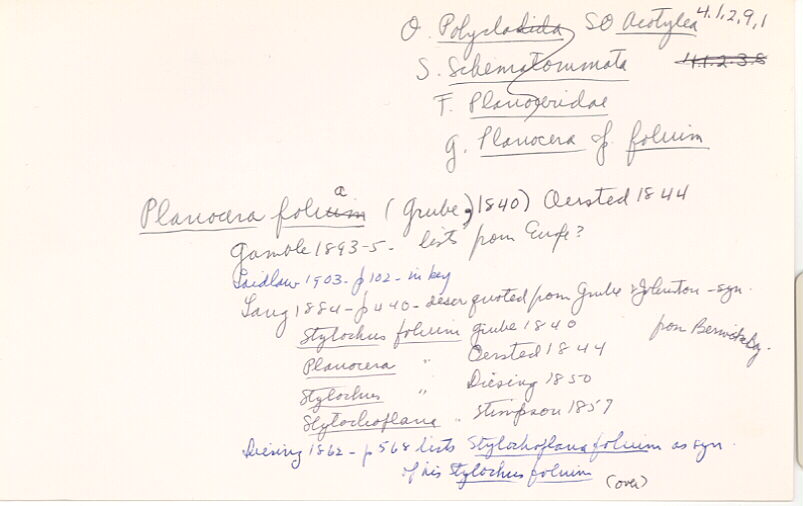 O. Polycladida SO Acotylea 4.1.2.9.1
S. Schematommata 4.1.2.3.8
F. Planoceridae
g. Planocera of folium
Planocera folium a (Grube, 1840) Oersted 1844
Gamble 1893-5 - lists from Eng?
Laidlaw 1903 - p102 - in key
Lang 1884 - p440 - descr quoted from Grube & Johnston - syn.
Stylochus folium Grube 1840 from Berwick Bay.
Planocera " Oersted 1844
Stylochus " Diesing 1850
Stylochoplana " Stimpson 1857
Diesing 1862 - p568 lists Stylochoplana folium as syn.
of his Stylochus folium
(over)